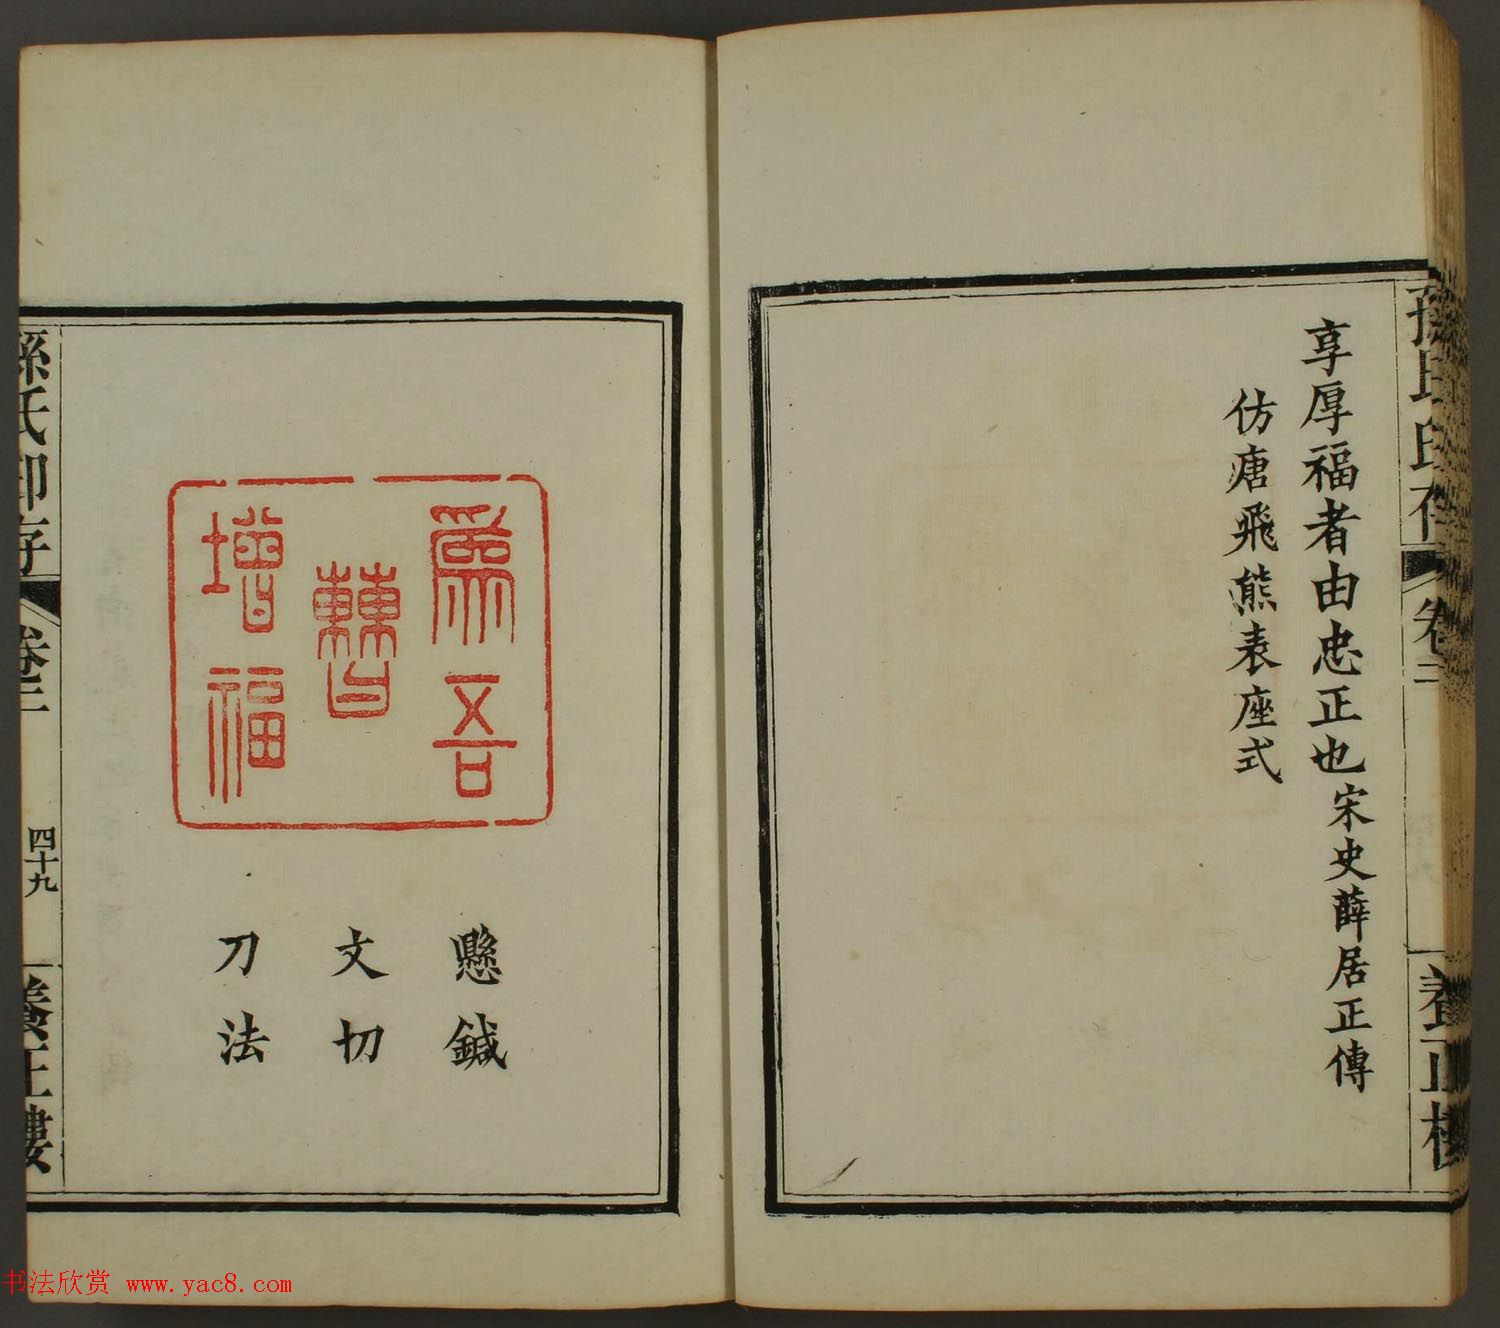 享厚福者由忠正也宋史薛居正傳
仿唐飛熊表座式
孫氏印存
卷二
養正樓
爲吾
曹
增福
懸鍼
文切
刀法
孫氏印存
卷二
四十九
養正樓
书法欣赏 www.yac8.com